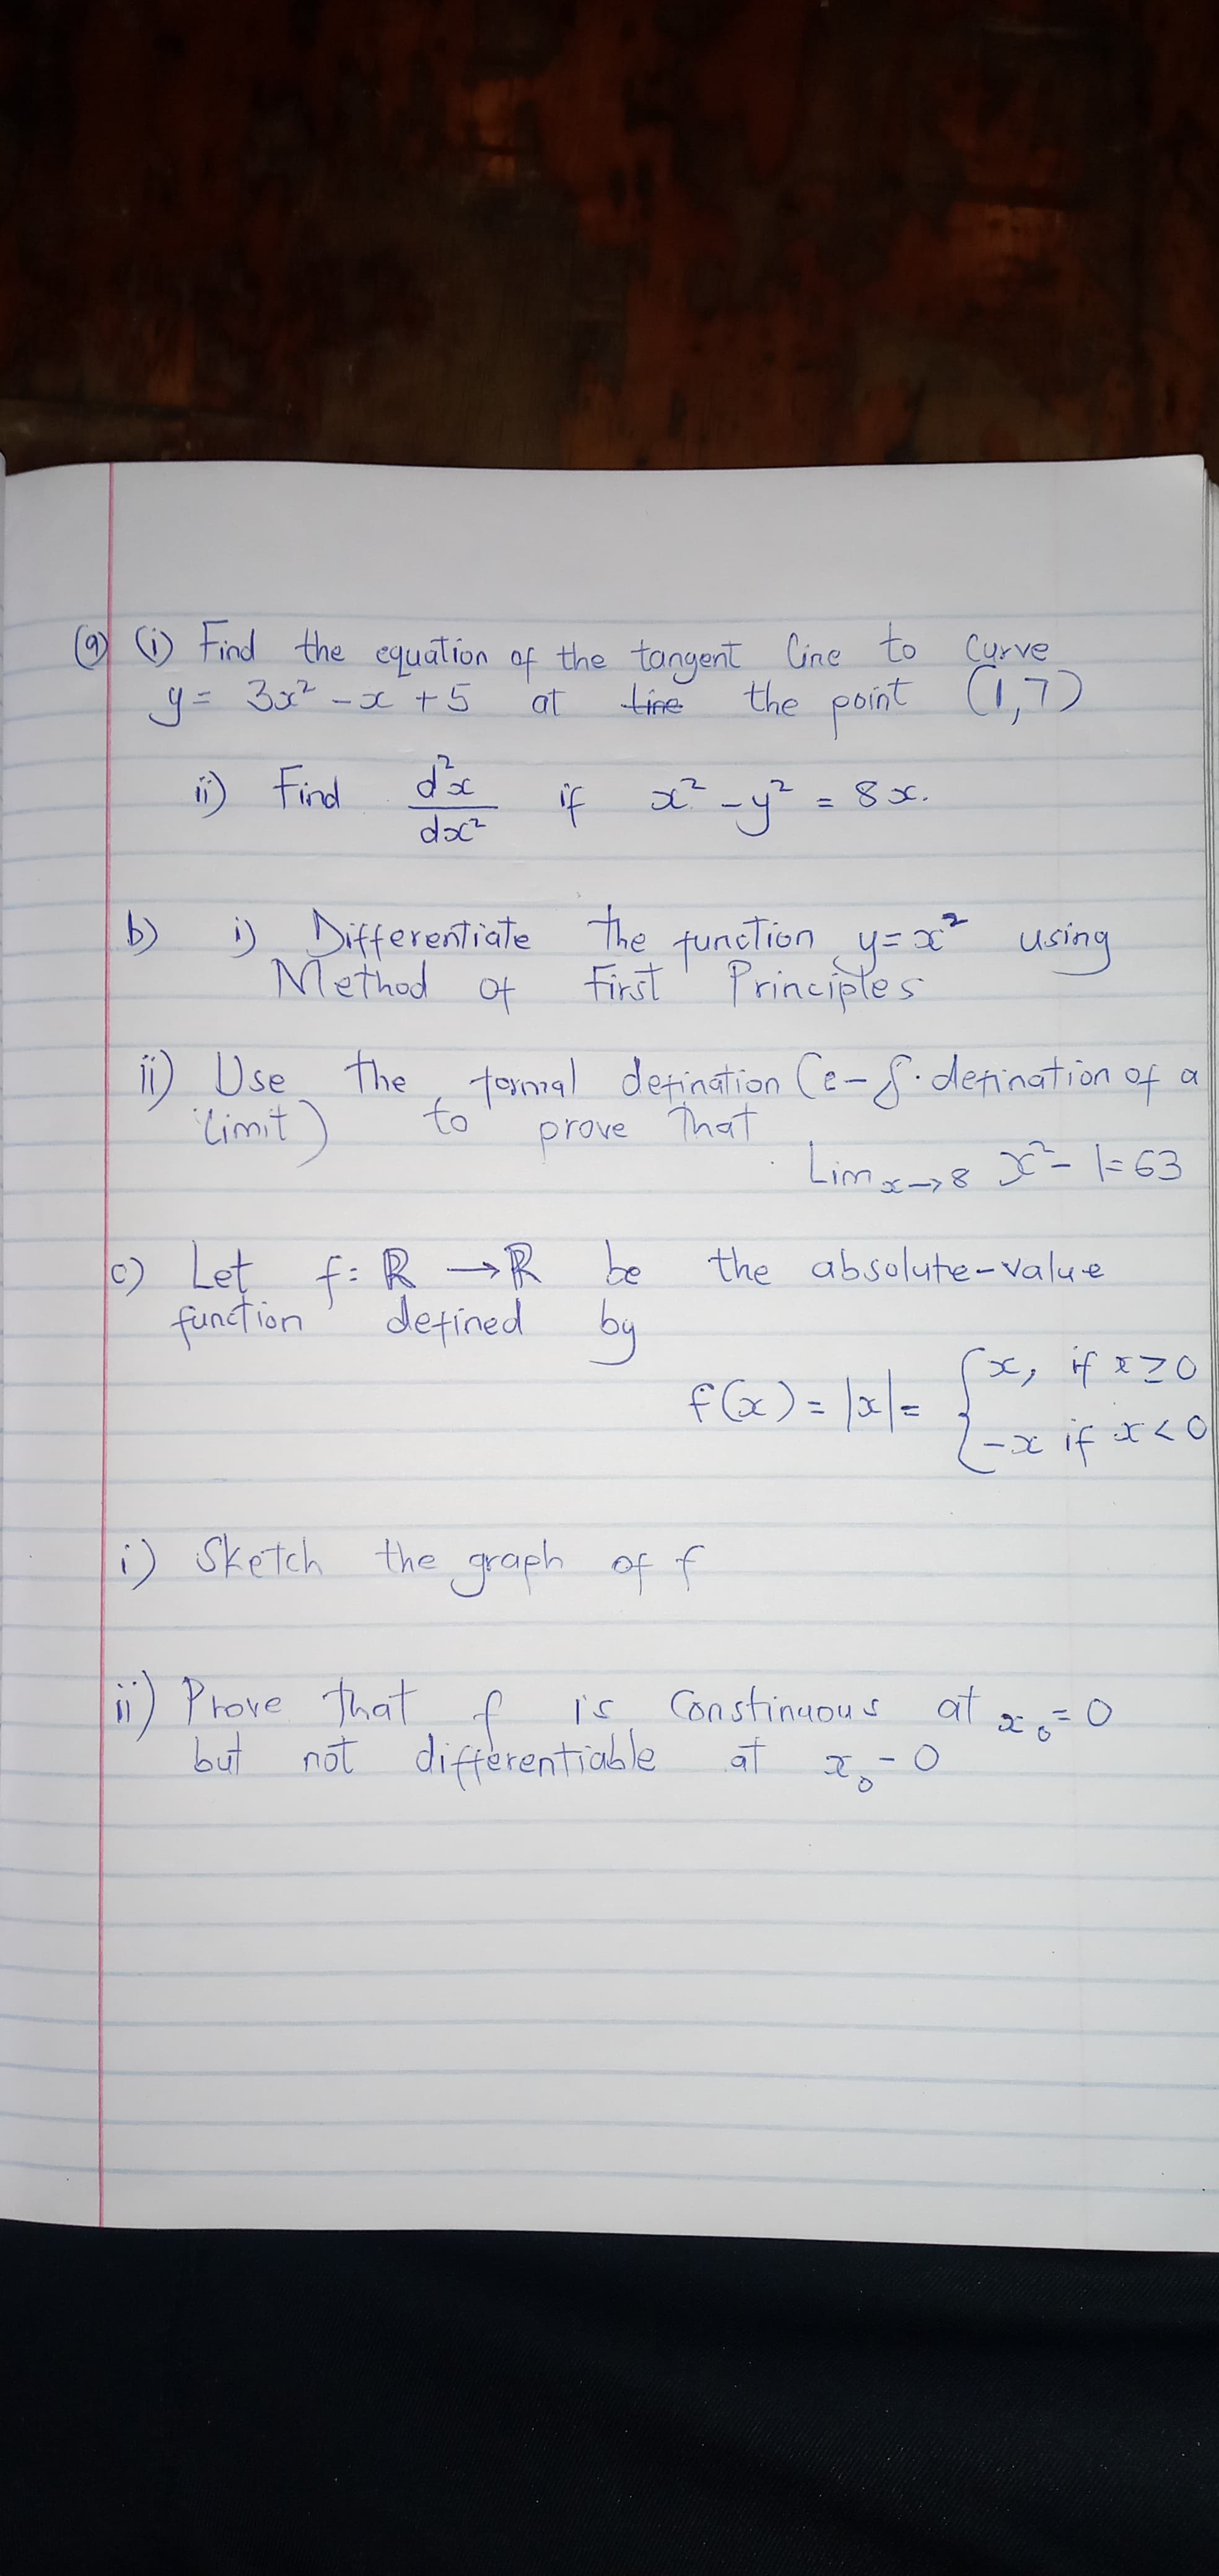 (a) (i) Find the equation of the tangent line to curve
y = 3x² - x + 5 at the point (1,7)
ii) Find d²x/dx² if x² - y² = 8x.
b) i) Differentiate the function y = x² using
Method of First Principles
ii) Use the formal defination (e-δ. defination of a
limit) to prove that
Lim x→8 x² - 1 = 63
c) Let f: ℝ → ℝ be the absolute-value
function defined by
f(x) = |x| = { x, if x ≥ 0
-x if x < 0
i) Sketch the graph of f
ii) Prove that f is Constinuous at x₀ = 0
but not differentiable at x₀ - 0